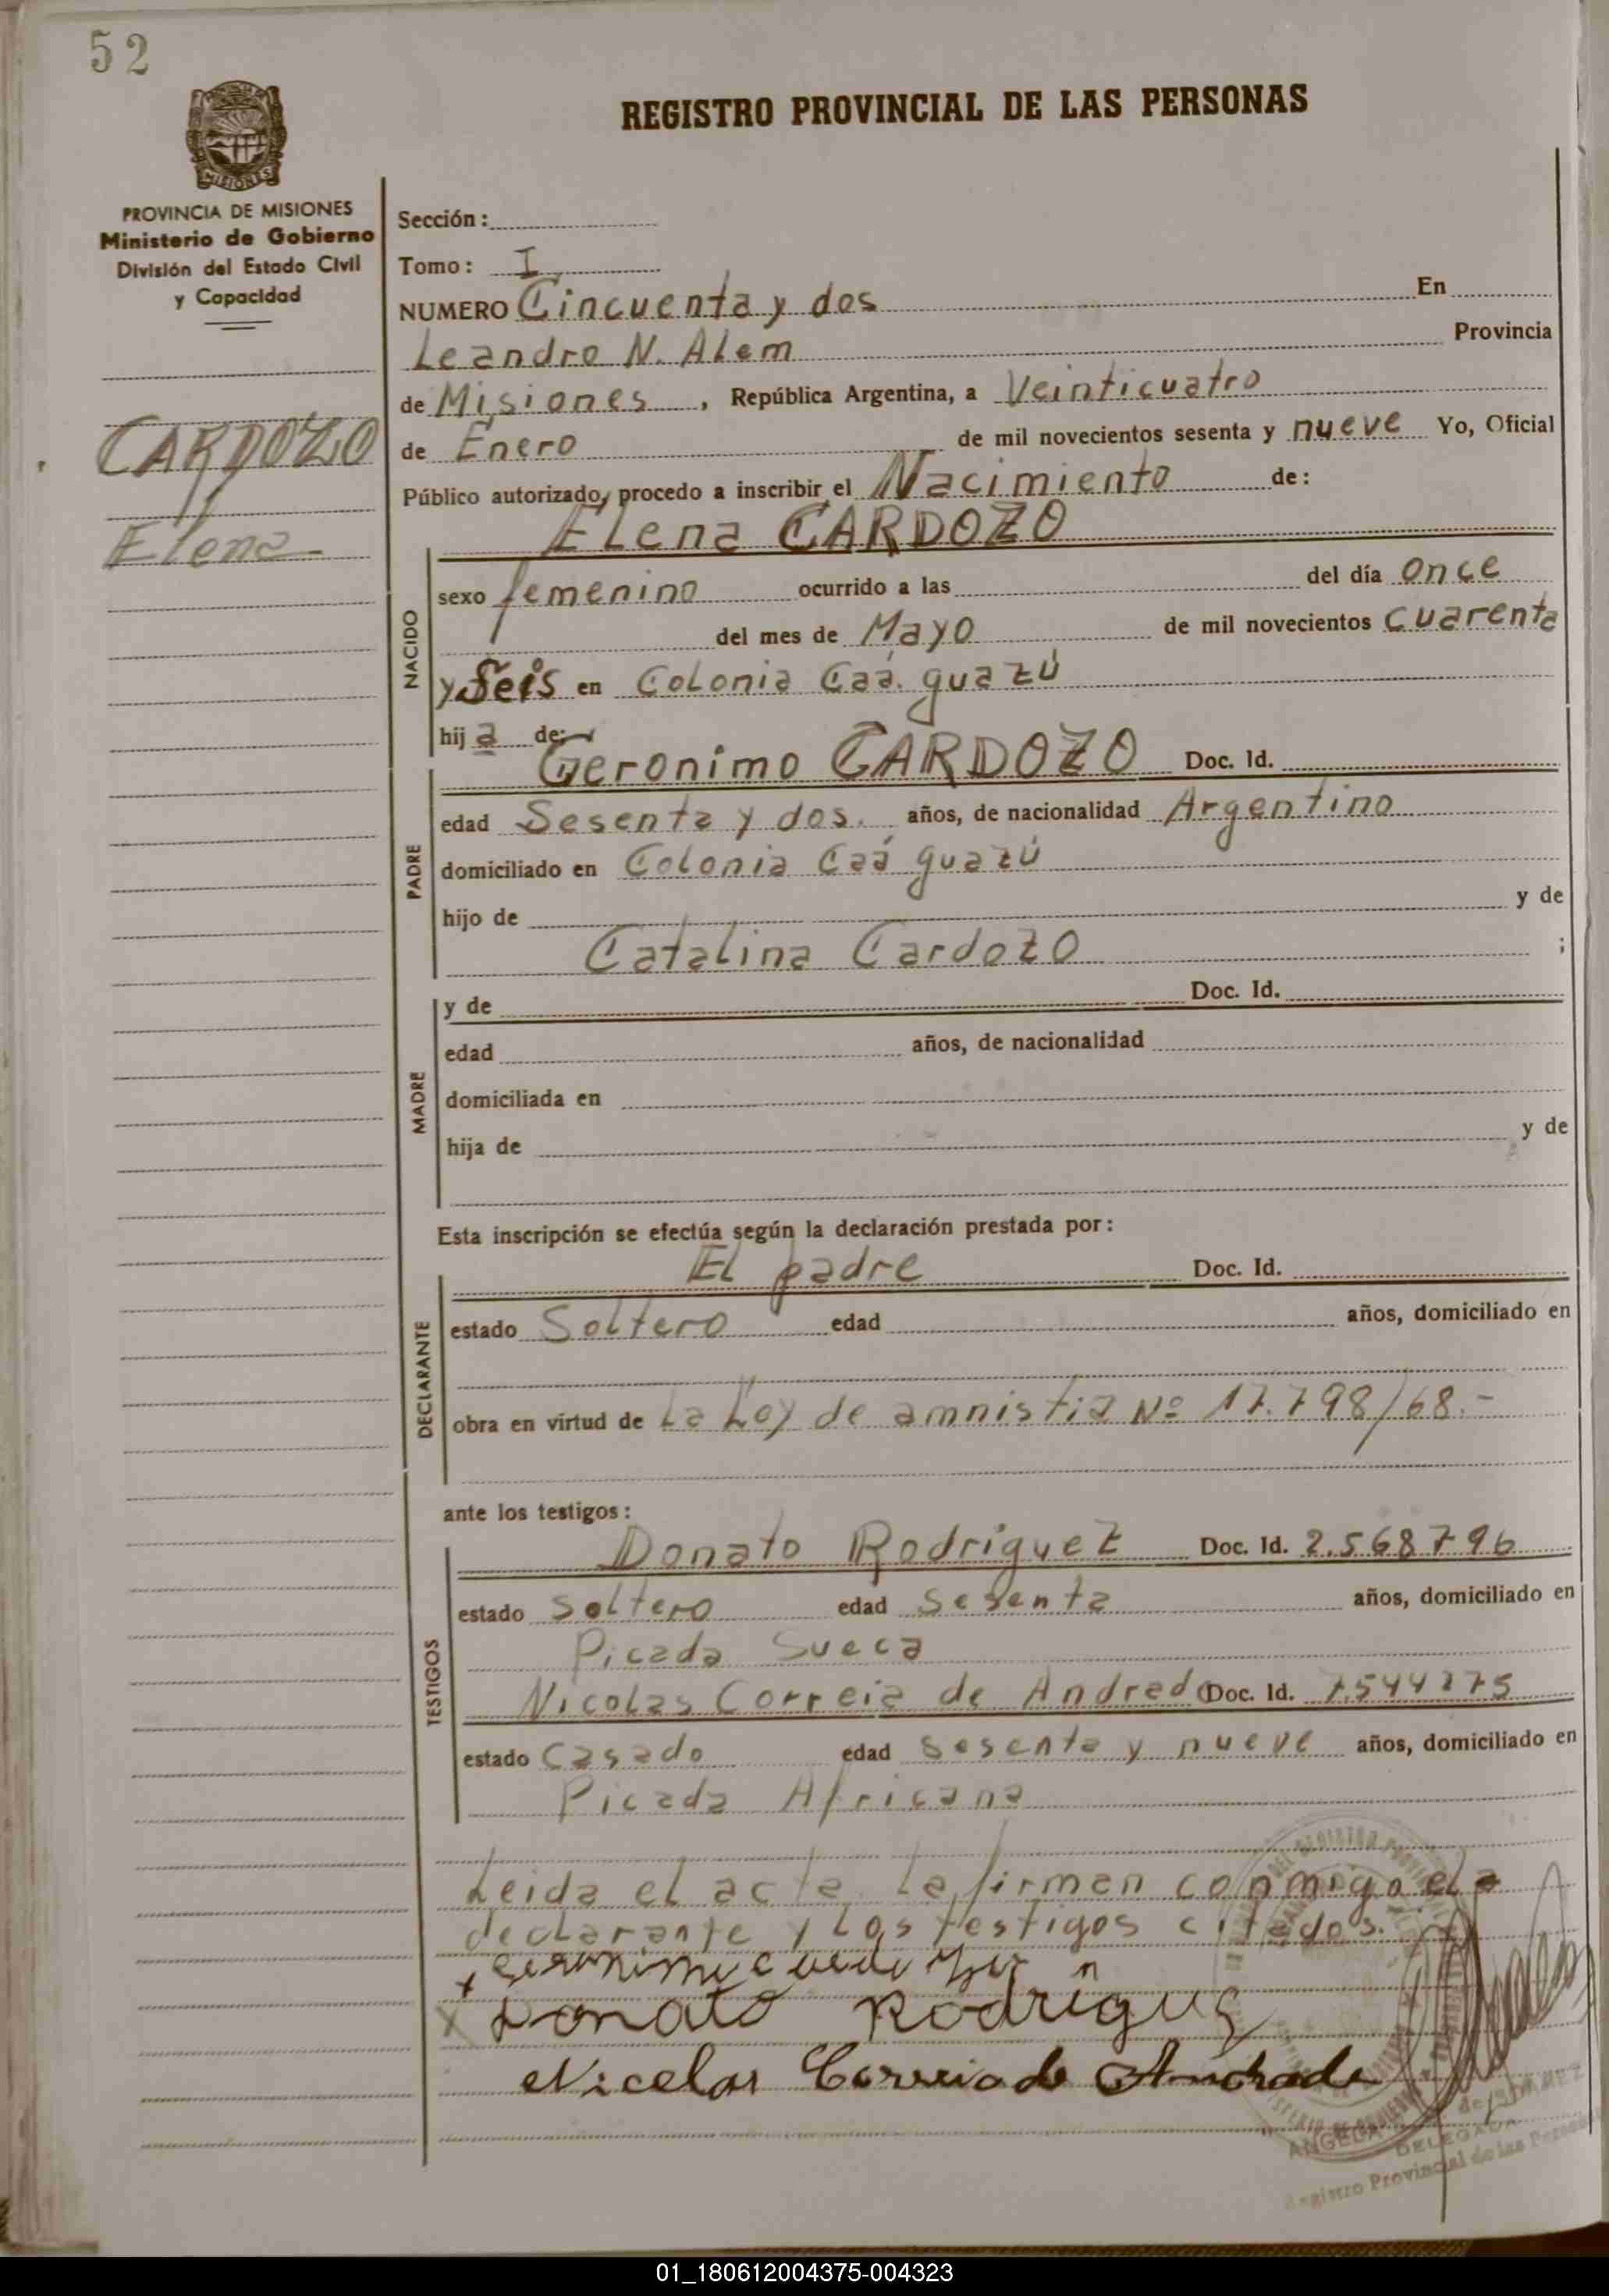 52
REGISTRO PROVINCIAL DE LAS PERSONAS
MISIONES
PROVINCIA DE MISIONES
Ministerio de Gobierno
División del Estado Civil
y Capacidad
CARDOZO
Elena
Sección:
Tomo: I
NUMERO Cincuenta y dos En
Leandro N. Alem Provincia
de Misiones, República Argentina, a Veinticuatro
de Enero de mil novecientos sesenta y nueve Yo, Oficial
Público autorizado, procedo a inscribir el Nacimiento de:
Elena CARDOZO
NACIDO
sexo femenino ocurrido a las del día once
del mes de Mayo de mil novecientos cuarenta
y Seis en Colonia Caá. guazú
hij a de:
PADRE
Geronimo CARDOZO Doc. Id.
edad Sesenta y dos. años, de nacionalidad Argentino
domiciliado en Colonia Caá guazú
hijo de y de
Catalina Cardozo ;
MADRE
y de Doc. Id.
edad años, de nacionalidad
domiciliada en
hija de y de
Esta inscripción se efectúa según la declaración prestada por:
DECLARANTE
El padre Doc. Id.
estado Soltero edad años, domiciliado en
obra en virtud de La Ley de amnistia Nº 17.798/68.-
ante los testigos:
TESTIGOS
Donato Rodríguez Doc. Id. 2.568796
estado Soltero edad Sesenta años, domiciliado en
Picada Sueca
Nicolas Correia de Andrade Doc. Id.
estado Casado edad Sesenta y nueve años, domiciliado en
Picada Africana
Leida el acta la firman conmigo el
declarante y los testigos citados.
Donato Rodrigue
Nicolas Correia de Andrade
DELEGADA
Registro Provincial de las Personas
01_180612004375-004323